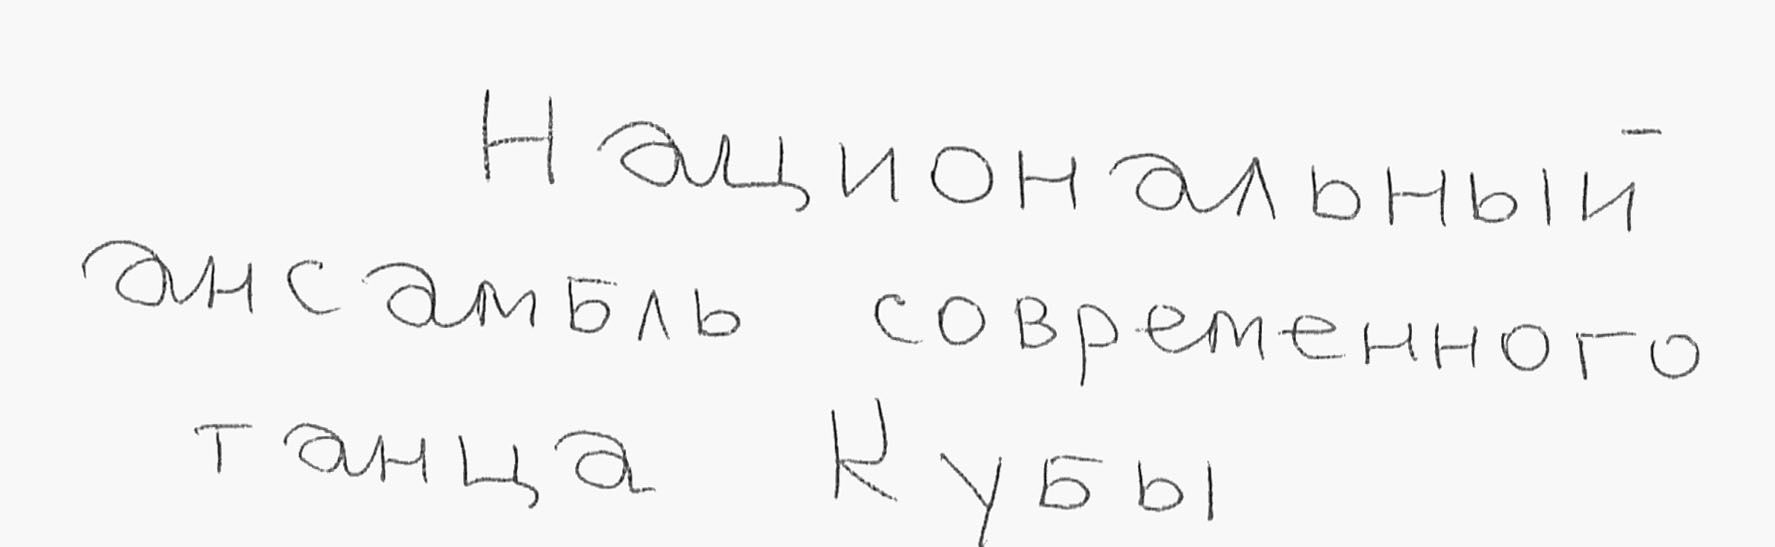 Национальный
ансамбль современного
танца Кубы